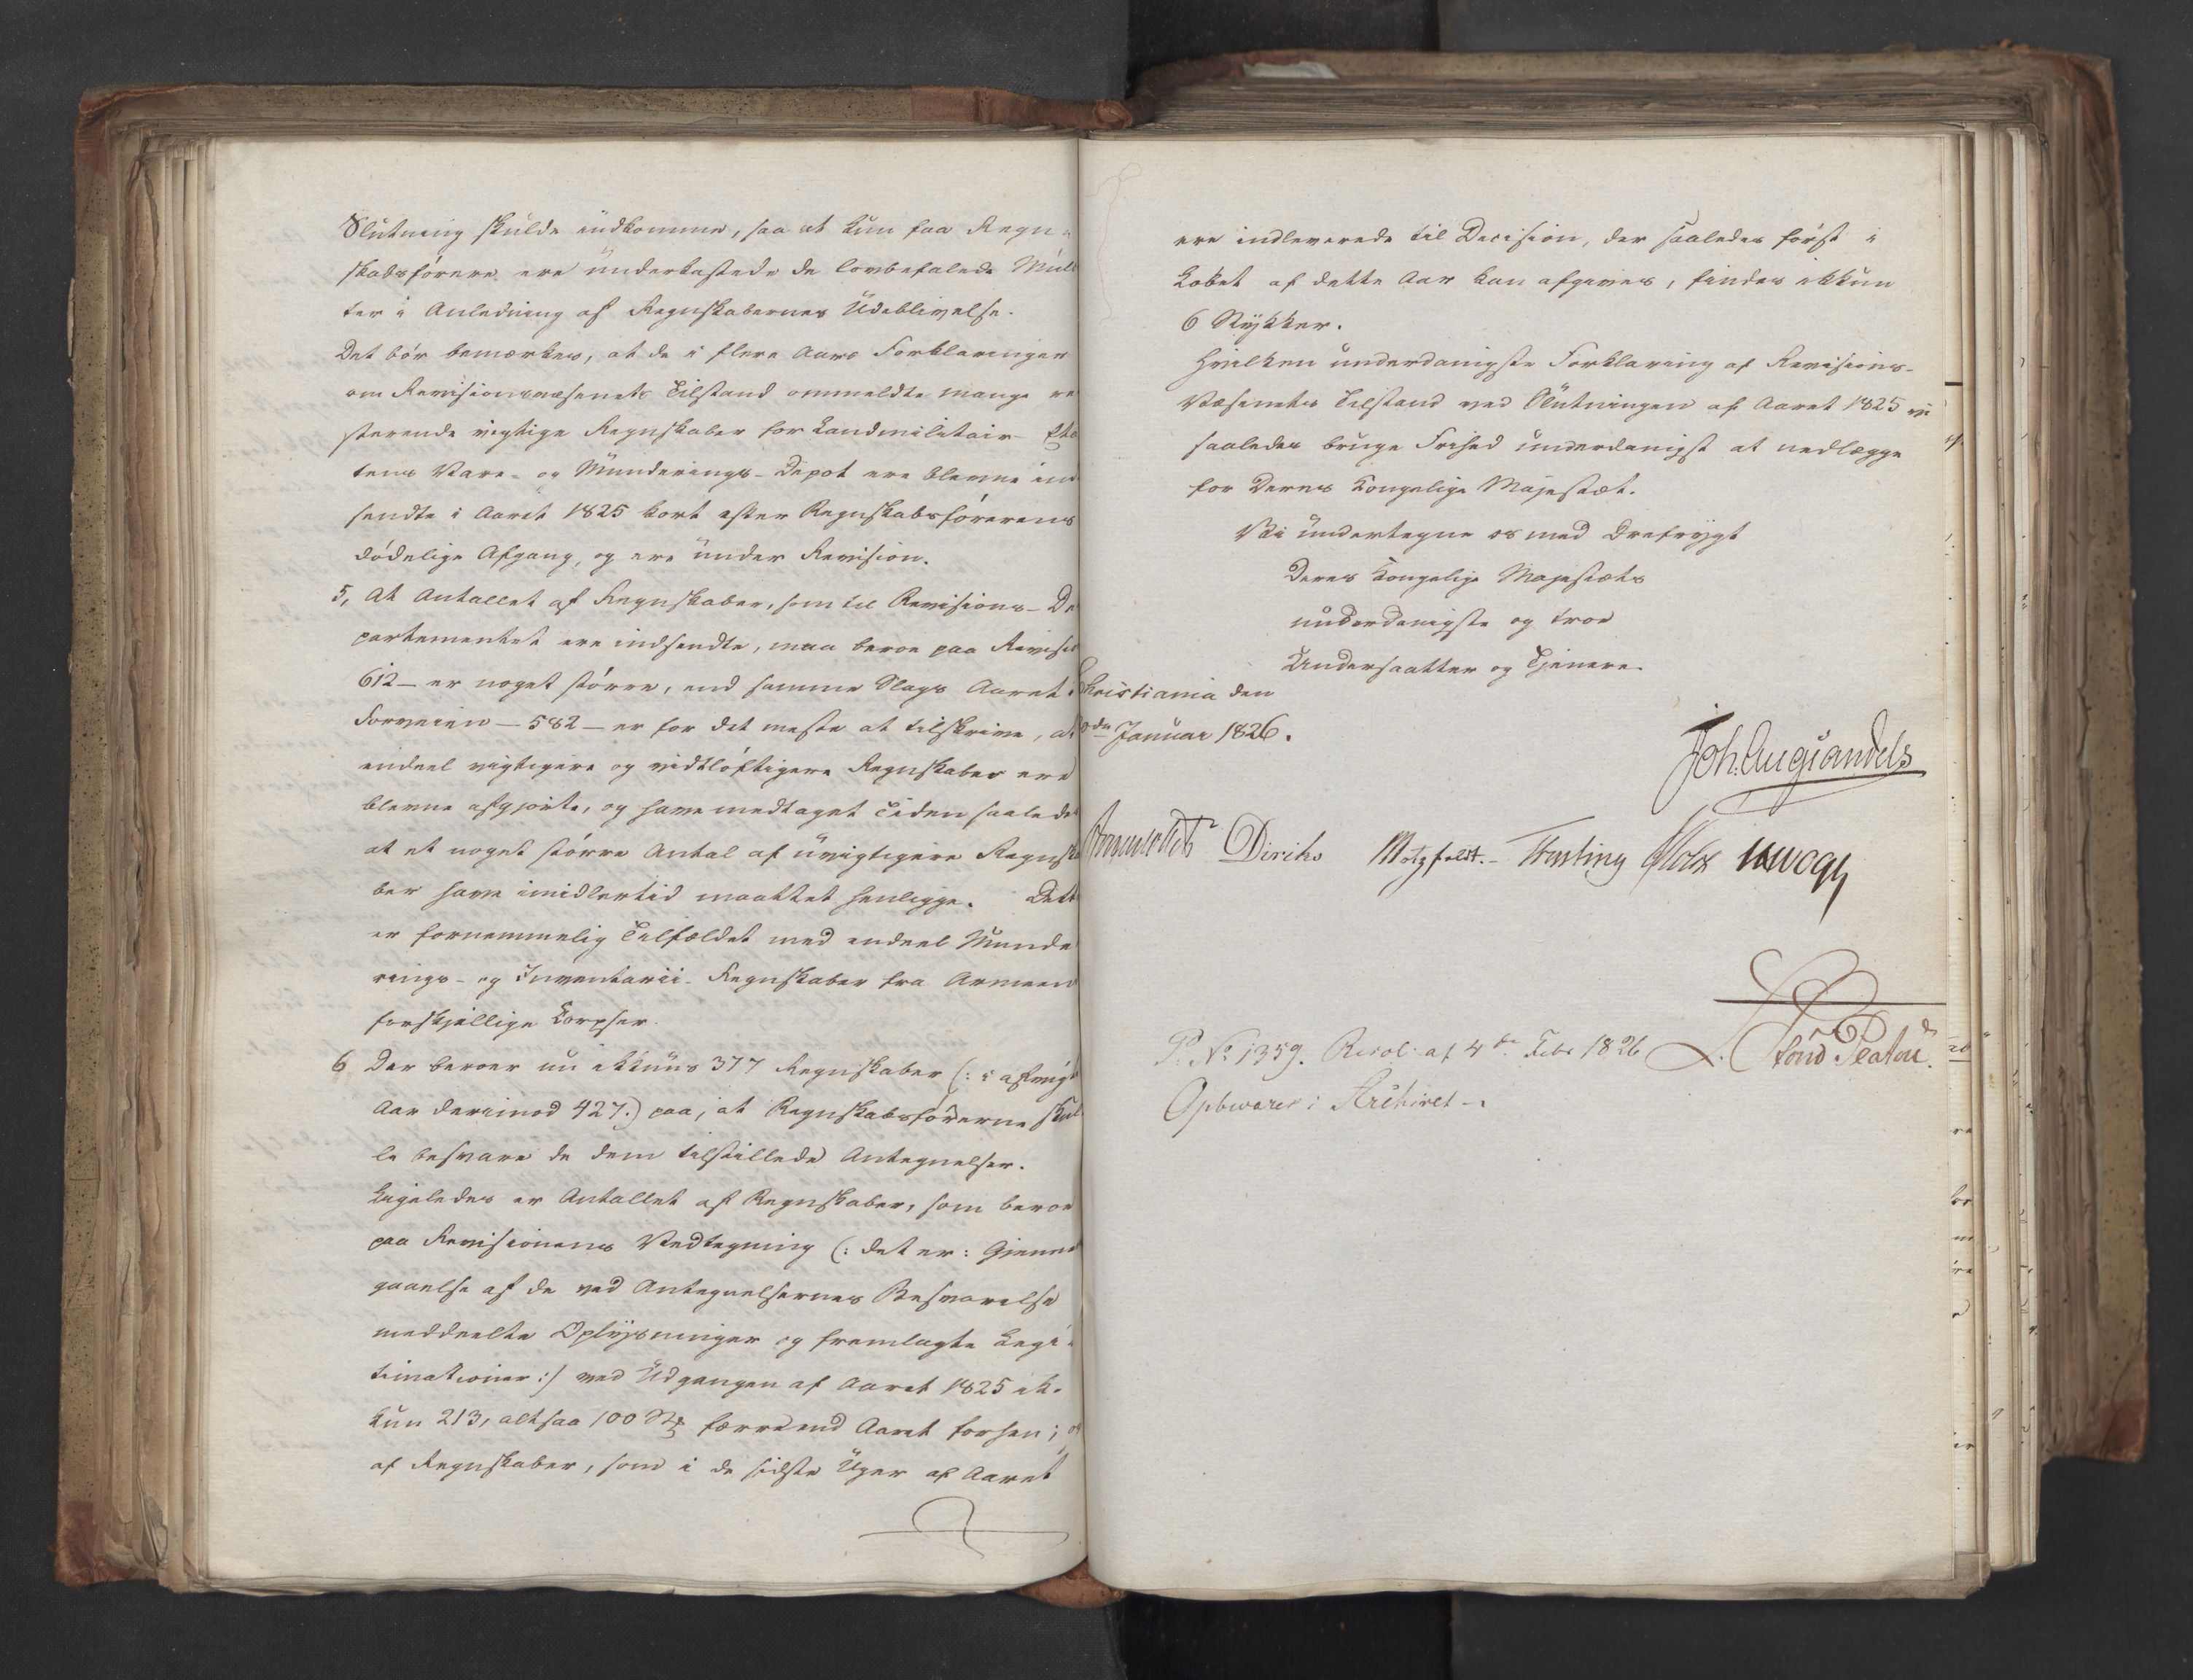 Slutning skulde indkomme, saa at kun faa Regn-
skabsførere ere underkastede de lovbefalede Mulk
ter i Anledning af Regnskabernes Udeblivelse.
Det bør bemærkes, at de i flere Aars Forklaringer
om Revisionsvæsenets Tilstand ommeldte mange re
sterende vigtige Regnskaber for Landmilitair-Eta
tens Vare- og Munderings-Depot ere blevne ind
sendte i Aaret 1825 kort efter Regnskabsførerens
dødelige Afgang, og ere under Revision.
5, At Antallet af Regnskaber, som til Revisions-De
partementet ere indsendte, maa beroe paa Revisi
612 – er noget større, end samme Slags Aaret i
Forveien – 582 – er for det meste at tilskrive, at
endeel vigtigere og vidtløftigere Regnskaber ere
blevne afgjorte, og have medtaget Tiden saaledes
at et noget større Antal af uvigtigere Regnska
ber have imidlertid maattet henligge. Dette
er fornemmelig Tilfældet med endeel Munde
rings- og Inventarii-Regnskaber fra Armeens
forskjellige Korpser.
6 Der beroer nu ikkuns 377 Regnskaber (: i afvigt
Aar derimod 427:) paa, at Regnskabsførerne skul
le besvare de dem tilstillede Antegnelser.
Ligeledes er Antallet af Regnskaber, som beroe
paa Revisionens Vedtegning (: det er: Giennem
gaaelse af de ved Antegnelsernes Besvarelse
meddeelte Oplysninger og fremlagte Legi-
timationer :) ved Udgangen af Aaret 1825 ik-
kun 213, altsaa 100 Stk færre end Aaret forhen; og
af Regnskaber, som i de sidste Uger af Aaret
ere indleverede til Decision, der saaledes først i
Løbet af dette Aar kan afgives, findes ikkun
6 Stykker.
Hvilken underdanigste Forklaring af Revisions-
Væsenets Tilstand ved Slutningen af Aaret 1825 vi
saaledes bruge Frihed underdanigst at nedlægge
for Deres Kongelige Majestæt.
Vi undertegne os med Ærefrygt
Deres Kongelige Majestæts
underdanigste og troe
Undersaatter og Tjenere.
Christiania den
Januar 1826.
Joh. Aug Sandels
Diriks Motzfeldt. Fasting Holst Krogh
P. No 1359. Resol: af 4de Febr 1826
L. Stoud Platou.
Opbevares i Archivet –